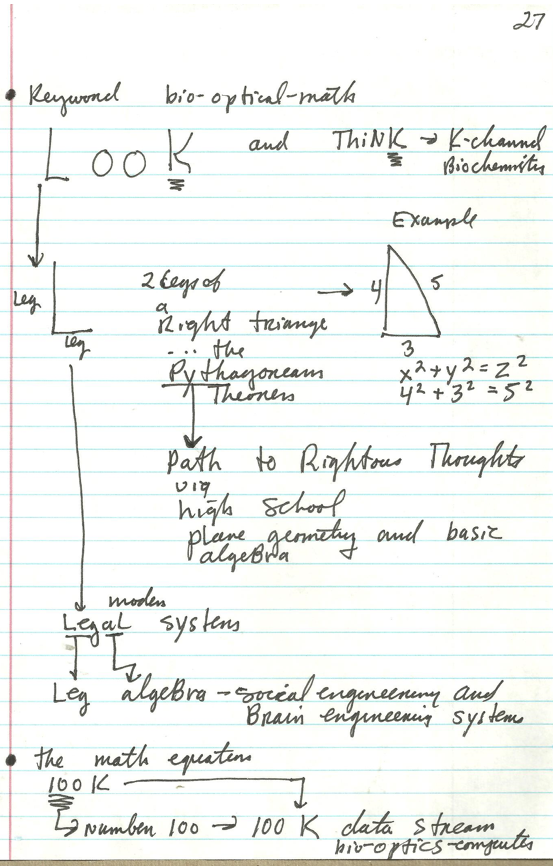 27
• Keyword bio-optical-math
L OO K and ThiNK → K-channel
Biochemistry
Example
Leg
Leg
2 Legs of
a
Right triange
... the
Pythagoneans
Theorers
4 5
3
x² + y² = z²
4² + 3² = 5²
Path to Rightous Thoughts
via
high school
plane geometry and basic
algeBra
modern
LegaL systems
Leg algeBra - social engineering and
Brain engineering systems
• the math equation
100 K
Number 100 → 100 K data stream
bio-optics-computer